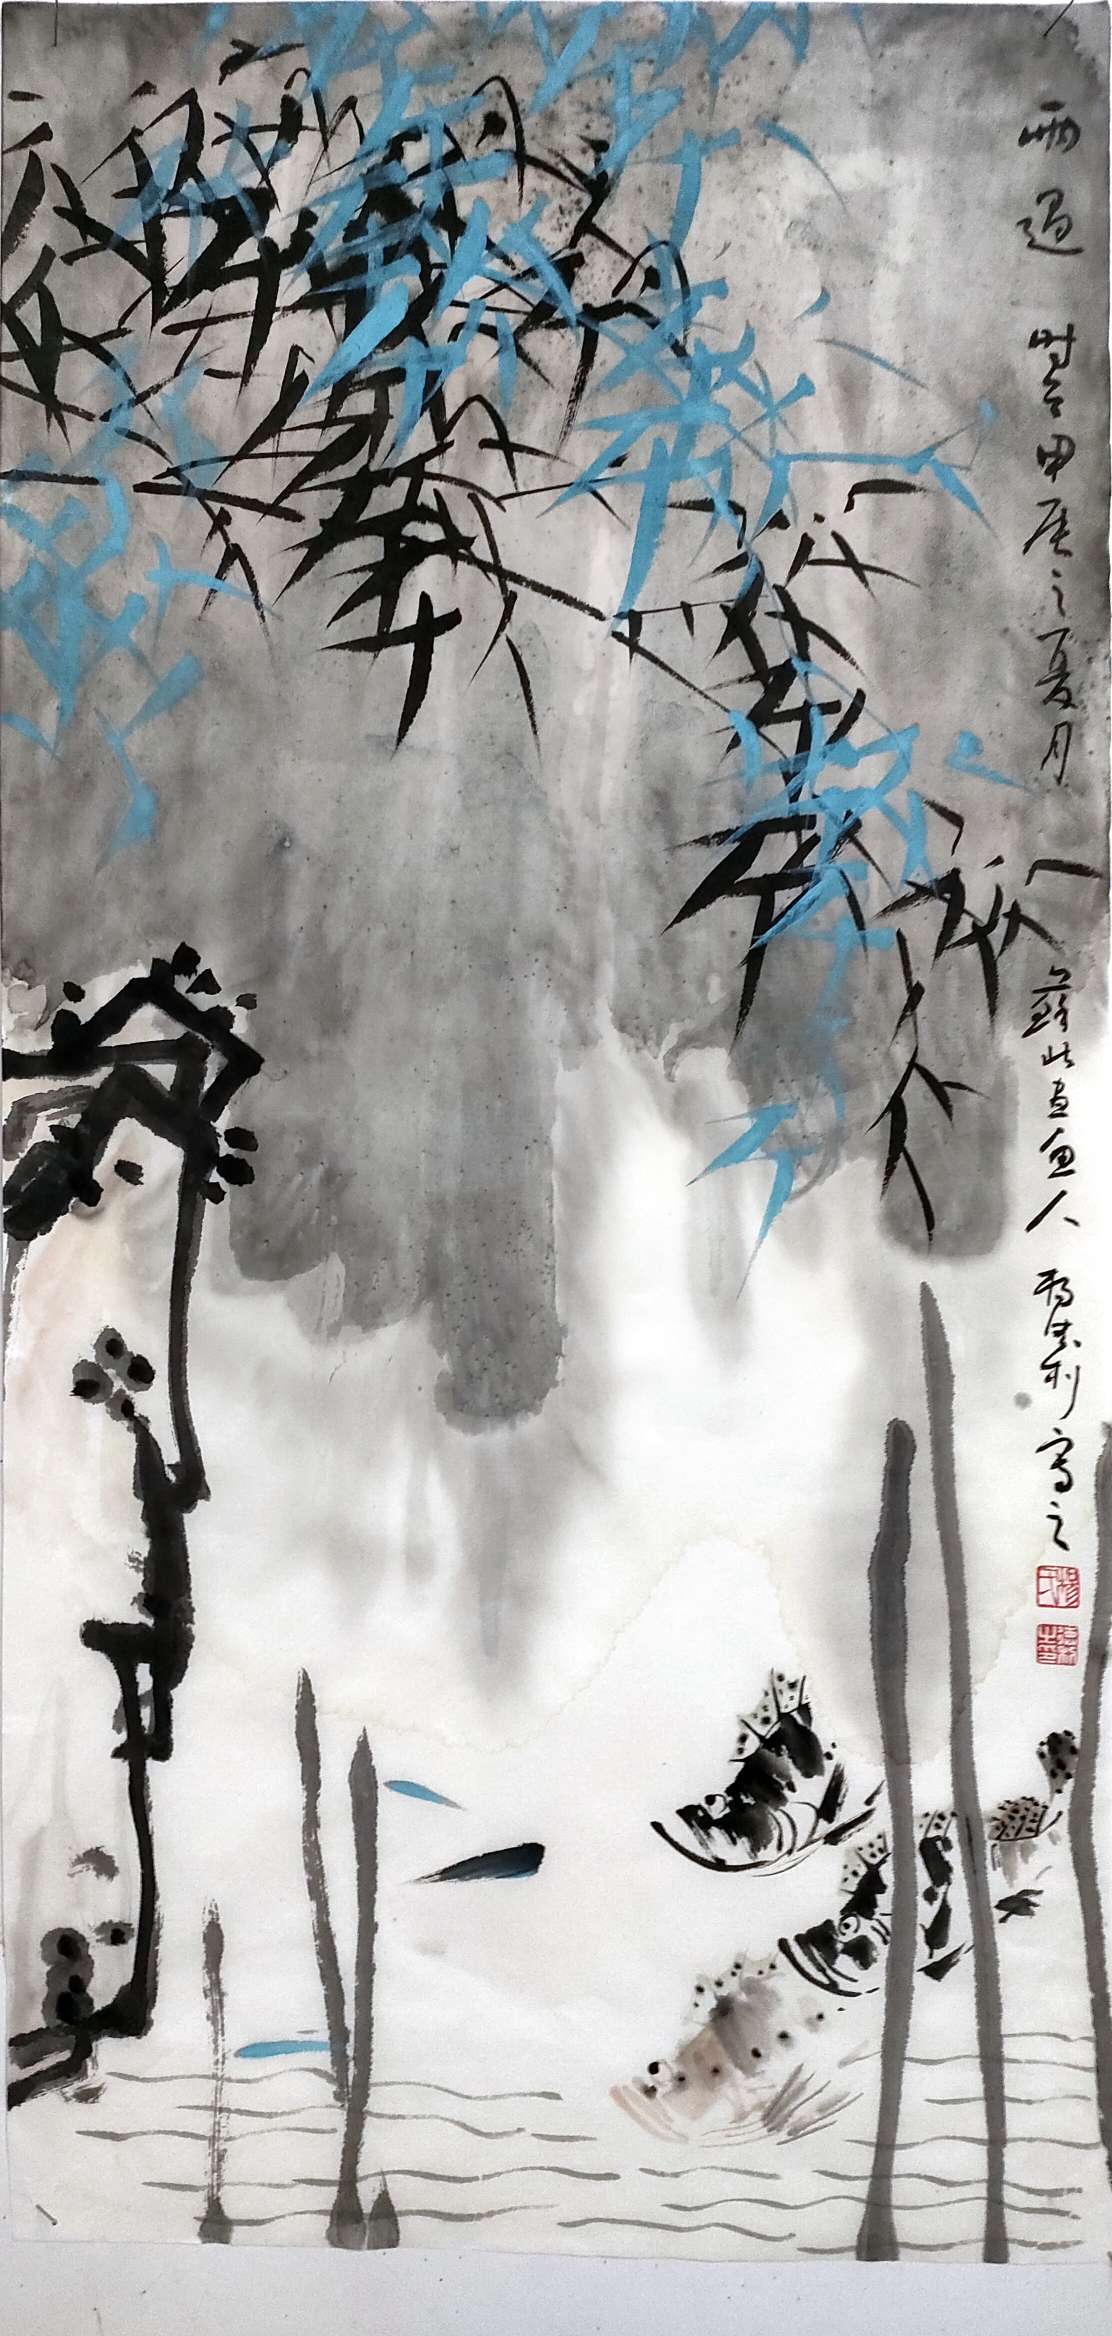 雨過 時在甲辰之夏月 蘇北畫魚人 楊利寫之
楊氏